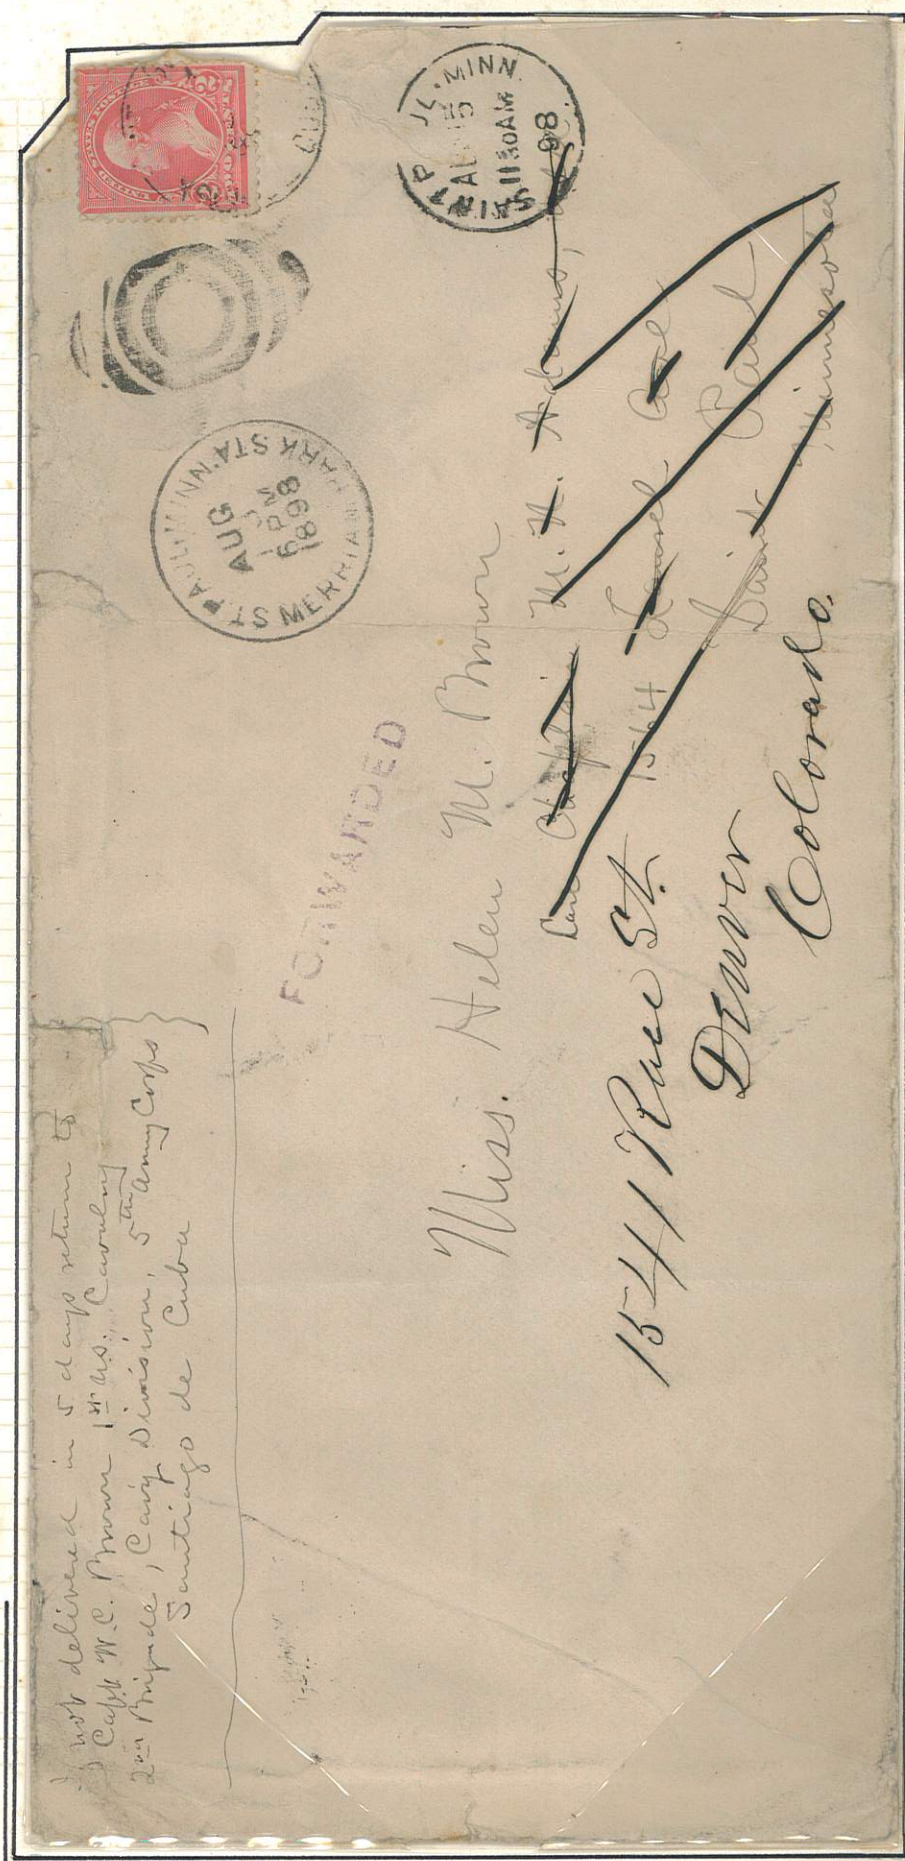 If not delivered in 5 days return to
Capt W.C. Brown 1st U.S. Cavalry
2nd Brigade, Cav'y Division, 5th Army Corps
Santiago de Cuba
UNITED STATES POSTAGE
TWO CENTS
2 2
CUBA
SAINT PAUL, MINN.
AUG 15
11 30 AM
98
ST. PAUL, MINN.
AUG
16
1898
MERRIAM PARK STA.
FORWARDED
Miss. Helen M. Brown
Care Chaplain
1564 Laurel Ave
Saint Paul
Minnesota
1541 Race St.
Denver
Colorado.